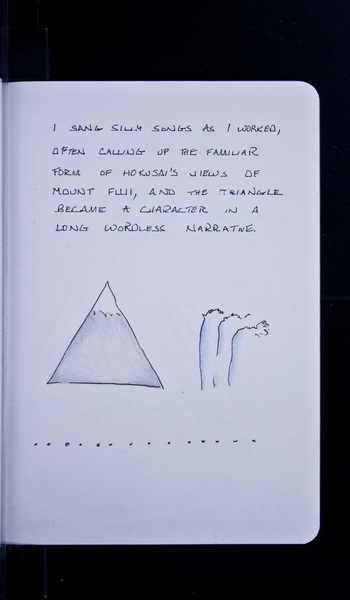 I SANG SILLY SONGS AS I WORKED,
OFTEN CALLING UP THE FAMILIAR
FORM OF HOKUSAI'S VIEWS OF
MOUNT FUJI, AND THE TRIANGLE
BECAME A CHARACTER IN A
LONG WORDLESS NARRATIVE.